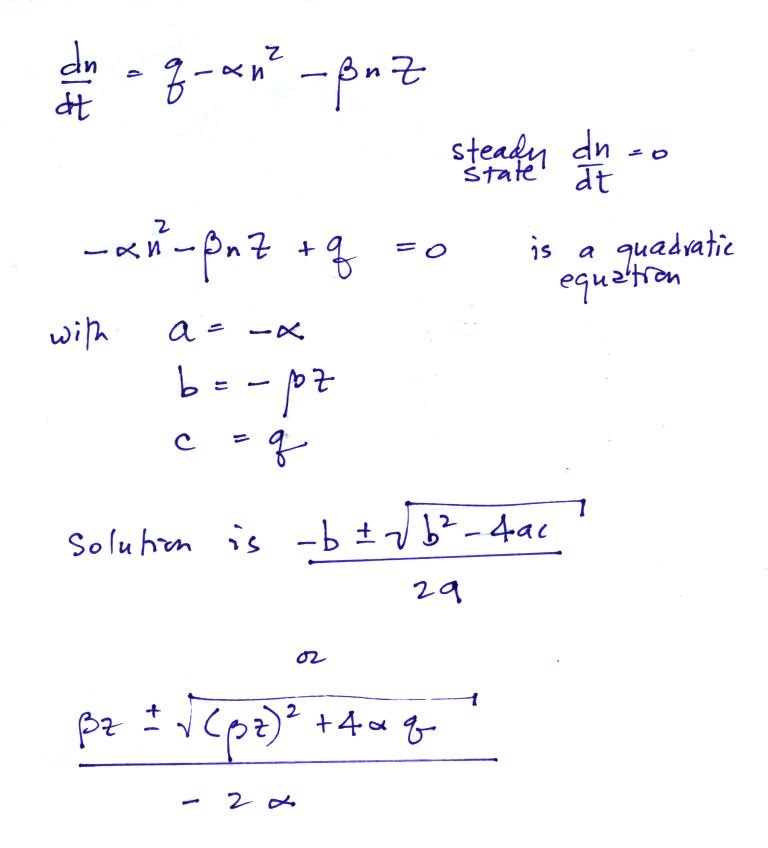 dn/dt = q - αn² - βnZ
steady state dn/dt = 0
-αn² - βnZ + q = 0 is a quadratic equation
with a = -α
b = -βZ
c = q
Solution is (-b ± √(b² - 4ac)) / 2a
or
(βZ ± √((βZ)² + 4αq)) / (-2α)